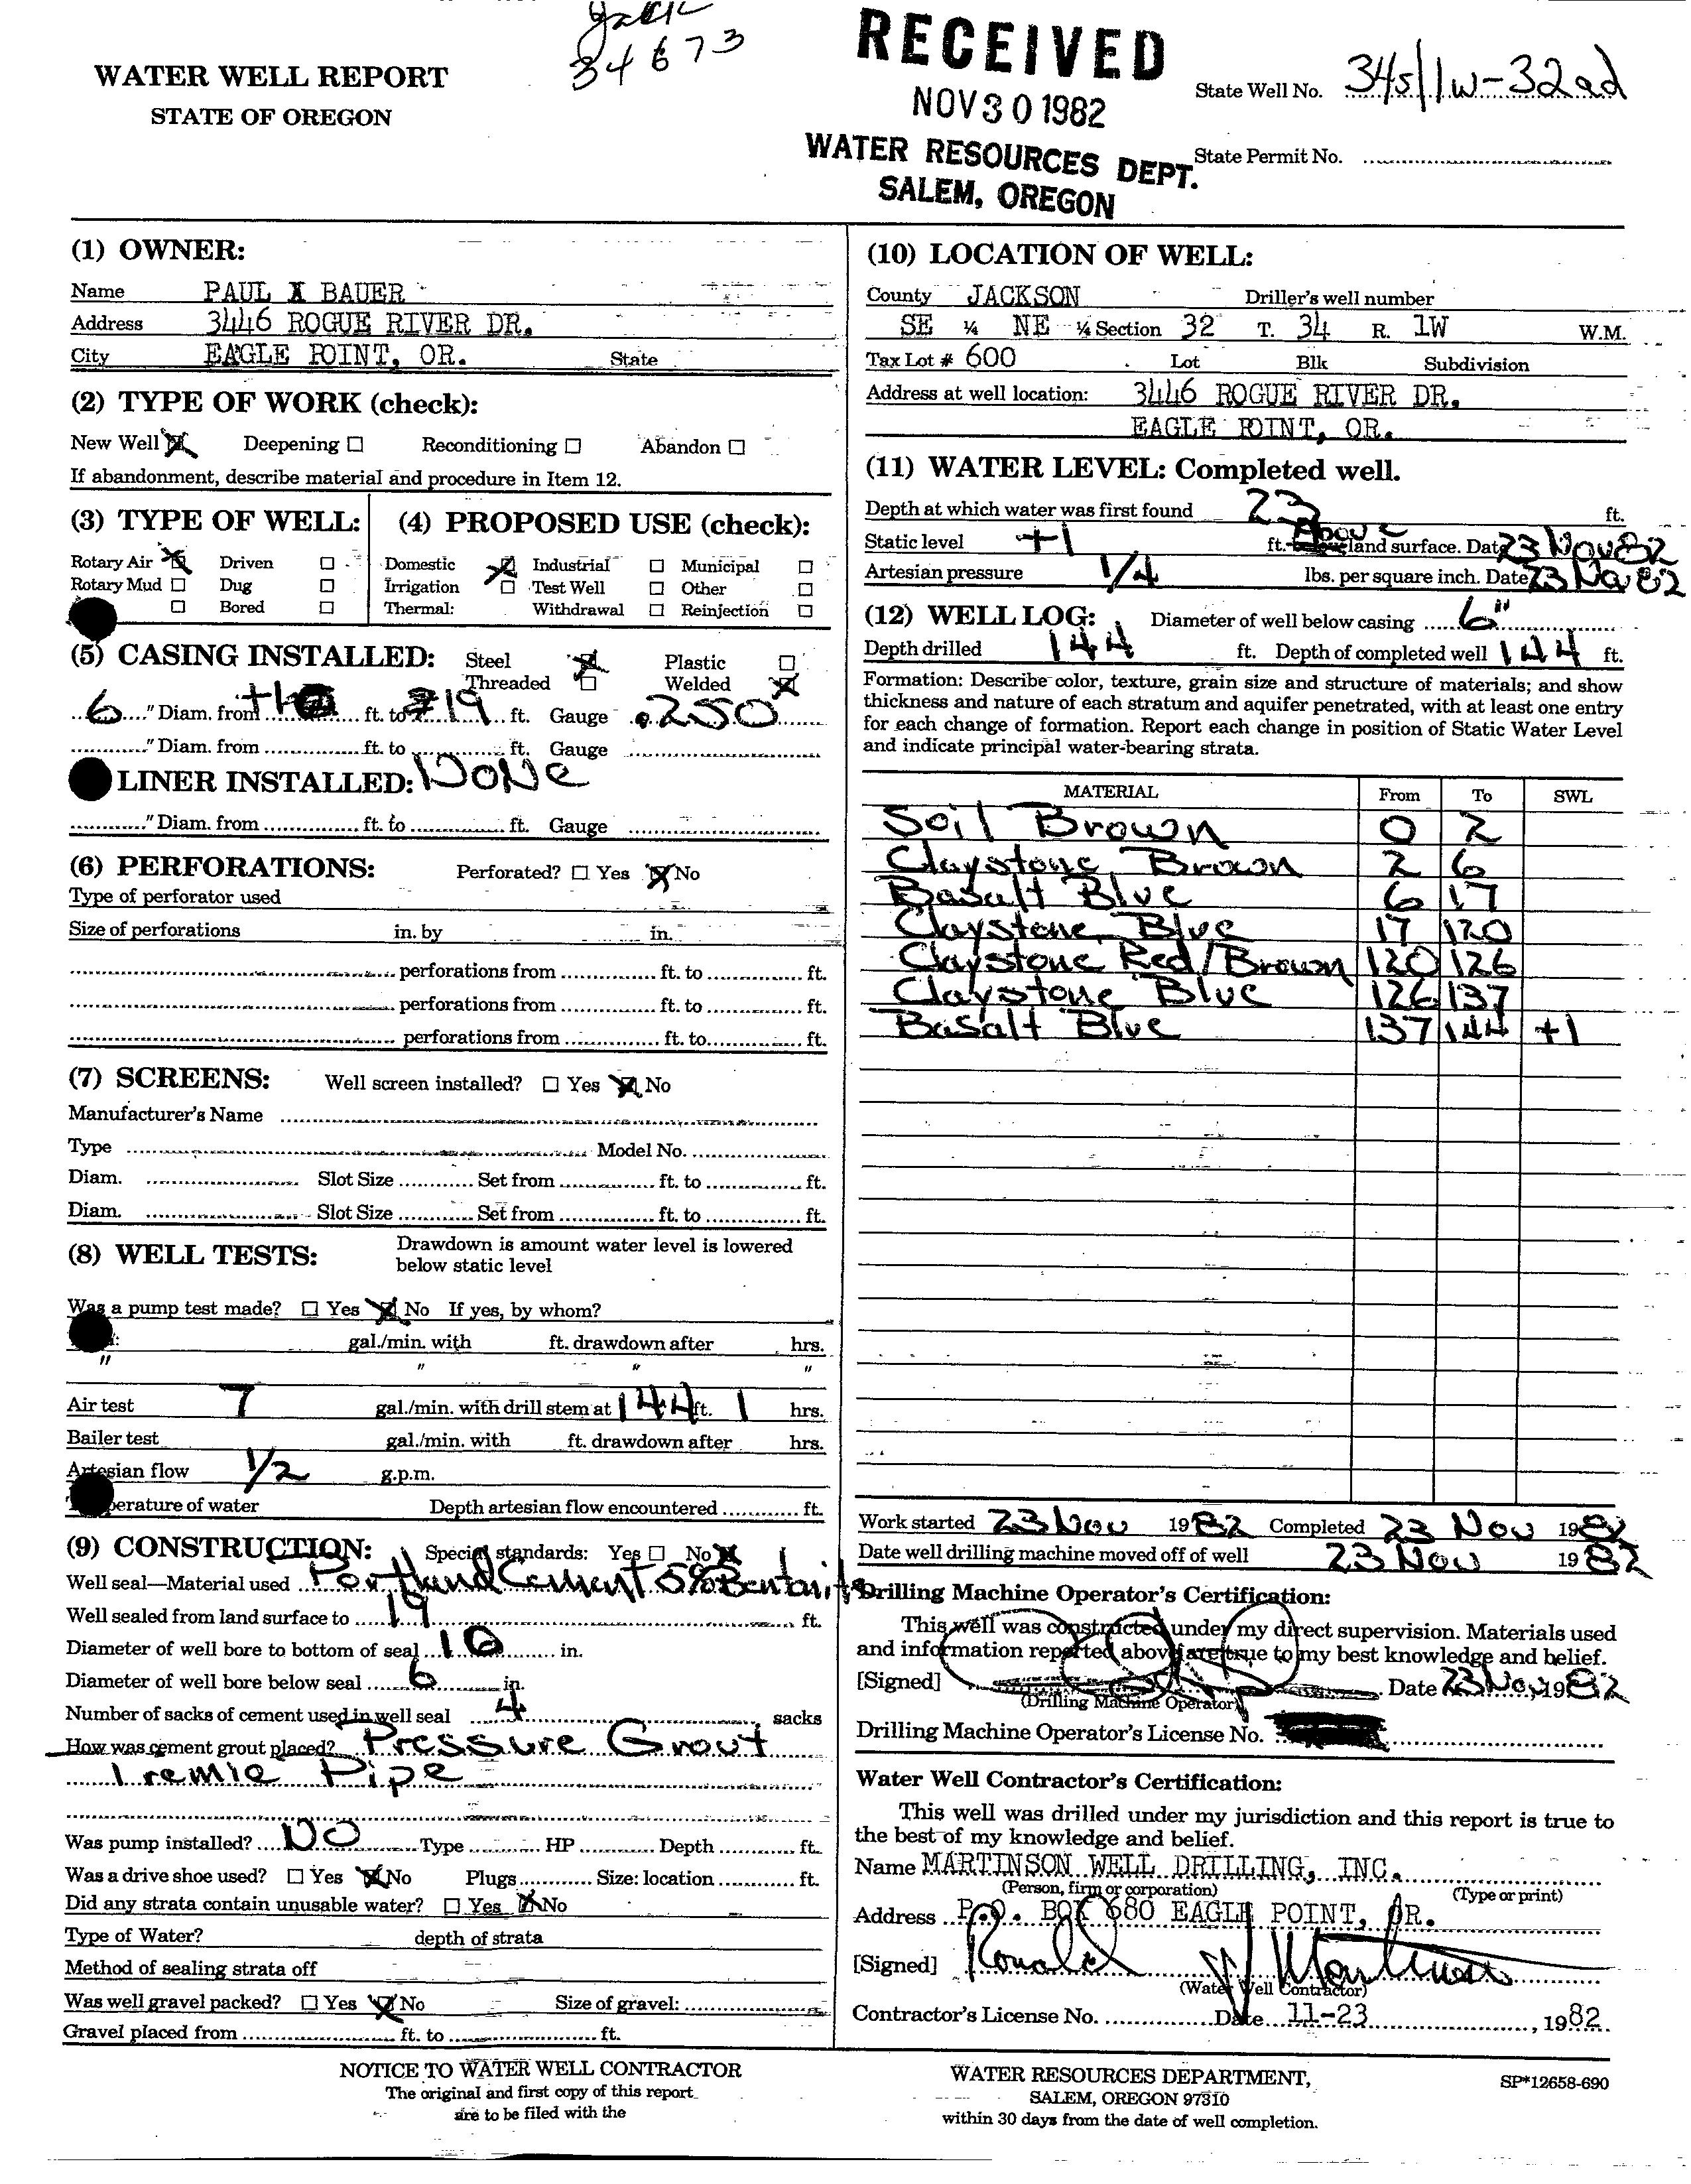 Jack
34673
RECEIVED
NOV 30 1982
WATER RESOURCES DEPT.
SALEM, OREGON
WATER WELL REPORT
STATE OF OREGON
State Well No. 34s/1w-32ad
State Permit No.
(1) OWNER:
Name PAUL X BAUER
Address 3446 ROGUE RIVER DR.
City EAGLE POINT, OR. State
(2) TYPE OF WORK (check):
New Well ☒ Deepening ☐ Reconditioning ☐ Abandon ☐
If abandonment, describe material and procedure in Item 12.
(3) TYPE OF WELL:
Rotary Air ☒ Driven ☐
Rotary Mud ☐ Dug ☐
☐ Bored ☐
(4) PROPOSED USE (check):
Domestic ☒ Industrial ☐ Municipal ☐
Irrigation ☐ Test Well ☐ Other ☐
Thermal: Withdrawal ☐ Reinjection ☐
(5) CASING INSTALLED: Steel ☒ Plastic ☐
Threaded ☐ Welded ☒
6 " Diam. from +1 ft. to 19 ft. Gauge .250
" Diam. from ft. to ft. Gauge
LINER INSTALLED: NONE
" Diam. from ft. to ft. Gauge
(6) PERFORATIONS: Perforated? ☐ Yes ☒ No
Type of perforator used
Size of perforations in. by in.
perforations from ft. to ft.
perforations from ft. to ft.
perforations from ft. to ft.
(7) SCREENS: Well screen installed? ☐ Yes ☒ No
Manufacturer's Name
Type Model No.
Diam. Slot Size Set from ft. to ft.
Diam. Slot Size Set from ft. to ft.
(8) WELL TESTS: Drawdown is amount water level is lowered
below static level
Was a pump test made? ☐ Yes ☒ No If yes, by whom?
gal./min. with ft. drawdown after hrs.
" " " "
Air test 7 gal./min. with drill stem at 144 ft. 1 hrs.
Bailer test gal./min. with ft. drawdown after hrs.
Artesian flow 1/2 g.p.m.
Temperature of water Depth artesian flow encountered ft.
(9) CONSTRUCTION: Special standards: Yes ☐ No ☒
Well seal—Material used Portland Cement 5% Bentonite
Well sealed from land surface to 19 ft.
Diameter of well bore to bottom of seal 10 in.
Diameter of well bore below seal 6 in.
Number of sacks of cement used in well seal 4 sacks
How was cement grout placed? Pressure Grout
Tremie Pipe
Was pump installed? NO Type HP Depth ft.
Was a drive shoe used? ☐ Yes ☒ No Plugs Size: location ft.
Did any strata contain unusable water? ☐ Yes ☒ No
Type of Water? depth of strata
Method of sealing strata off
Was well gravel packed? ☐ Yes ☒ No Size of gravel:
Gravel placed from ft. to ft.
(10) LOCATION OF WELL:
County JACKSON Driller's well number
SE ¼ NE ¼ Section 32 T. 34 R. 1W W.M.
Tax Lot # 600 Lot Blk Subdivision
Address at well location: 3446 ROGUE RIVER DR.
EAGLE POINT, OR.
(11) WATER LEVEL: Completed well.
Depth at which water was first found 23 ft.
Static level +1 ft. Above land surface. Date 23 Nov 82
Artesian pressure 1/4 lbs. per square inch. Date 23 Nov 82
(12) WELL LOG: Diameter of well below casing 6"
Depth drilled 144 ft. Depth of completed well 144 ft.
Formation: Describe color, texture, grain size and structure of materials; and show
thickness and nature of each stratum and aquifer penetrated, with at least one entry
for each change of formation. Report each change in position of Static Water Level
and indicate principal water-bearing strata.
MATERIAL From To SWL
Soil Brown 0 2
Claystone Brown 2 6
Basalt Blue 6 17
Claystone Blue 17 120
Claystone Red/Brown 120 126
Claystone Blue 126 137
Basalt Blue 137 144 +1
Work started 23 Nov 1982 Completed 23 Nov 1982
Date well drilling machine moved off of well 23 Nov 1982
Drilling Machine Operator's Certification:
This well was constructed under my direct supervision. Materials used
and information reported above are true to my best knowledge and belief.
[Signed] Date 23 Nov, 1982
(Drilling Machine Operator)
Drilling Machine Operator's License No.
Water Well Contractor's Certification:
This well was drilled under my jurisdiction and this report is true to
the best of my knowledge and belief.
Name MARTINSON WELL DRILLING, INC.
(Person, firm or corporation) (Type or print)
Address P.O. BOX 680 EAGLE POINT, OR.
[Signed] Ronald J Martinson
(Water Well Contractor)
Contractor's License No. Date 11-23, 1982
NOTICE TO WATER WELL CONTRACTOR
The original and first copy of this report
are to be filed with the
WATER RESOURCES DEPARTMENT,
SALEM, OREGON 97310
within 30 days from the date of well completion.
SP*12658-690